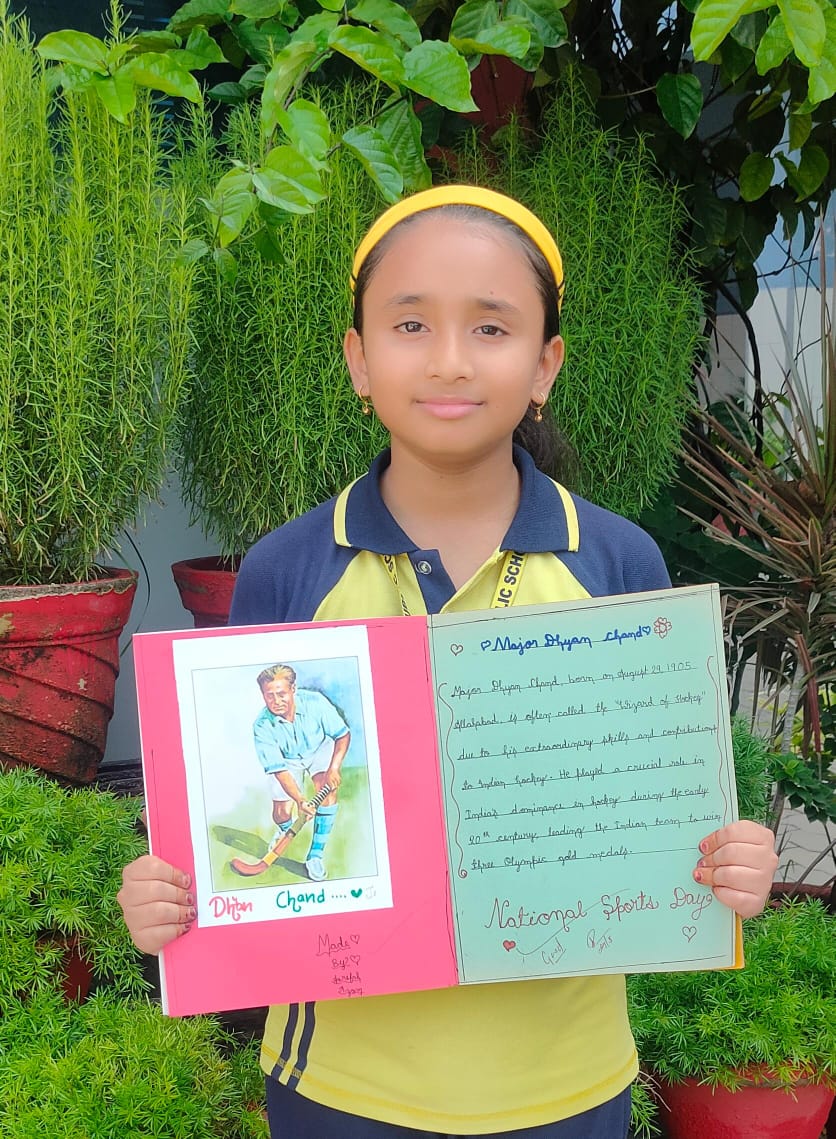 LIC SCH
Major Dhyan Chand
Major Dhyan Chand, born on August 29, 1905
Allahabad, is often called the "Wizard of Hockey"
due to his extraordinary skills and contributions
to Indian hockey. He played a crucial role in
India's dominance in hockey during the early
20th century, leading the Indian team to win
three Olympic gold medals.
National Sports Day
Good
Dhan Chand ....
Made
By?